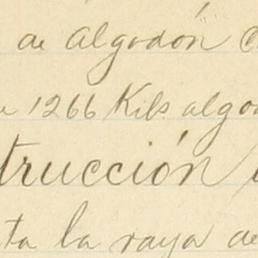 de algodón
1266 Kils. algo
trucción
ta la raya de